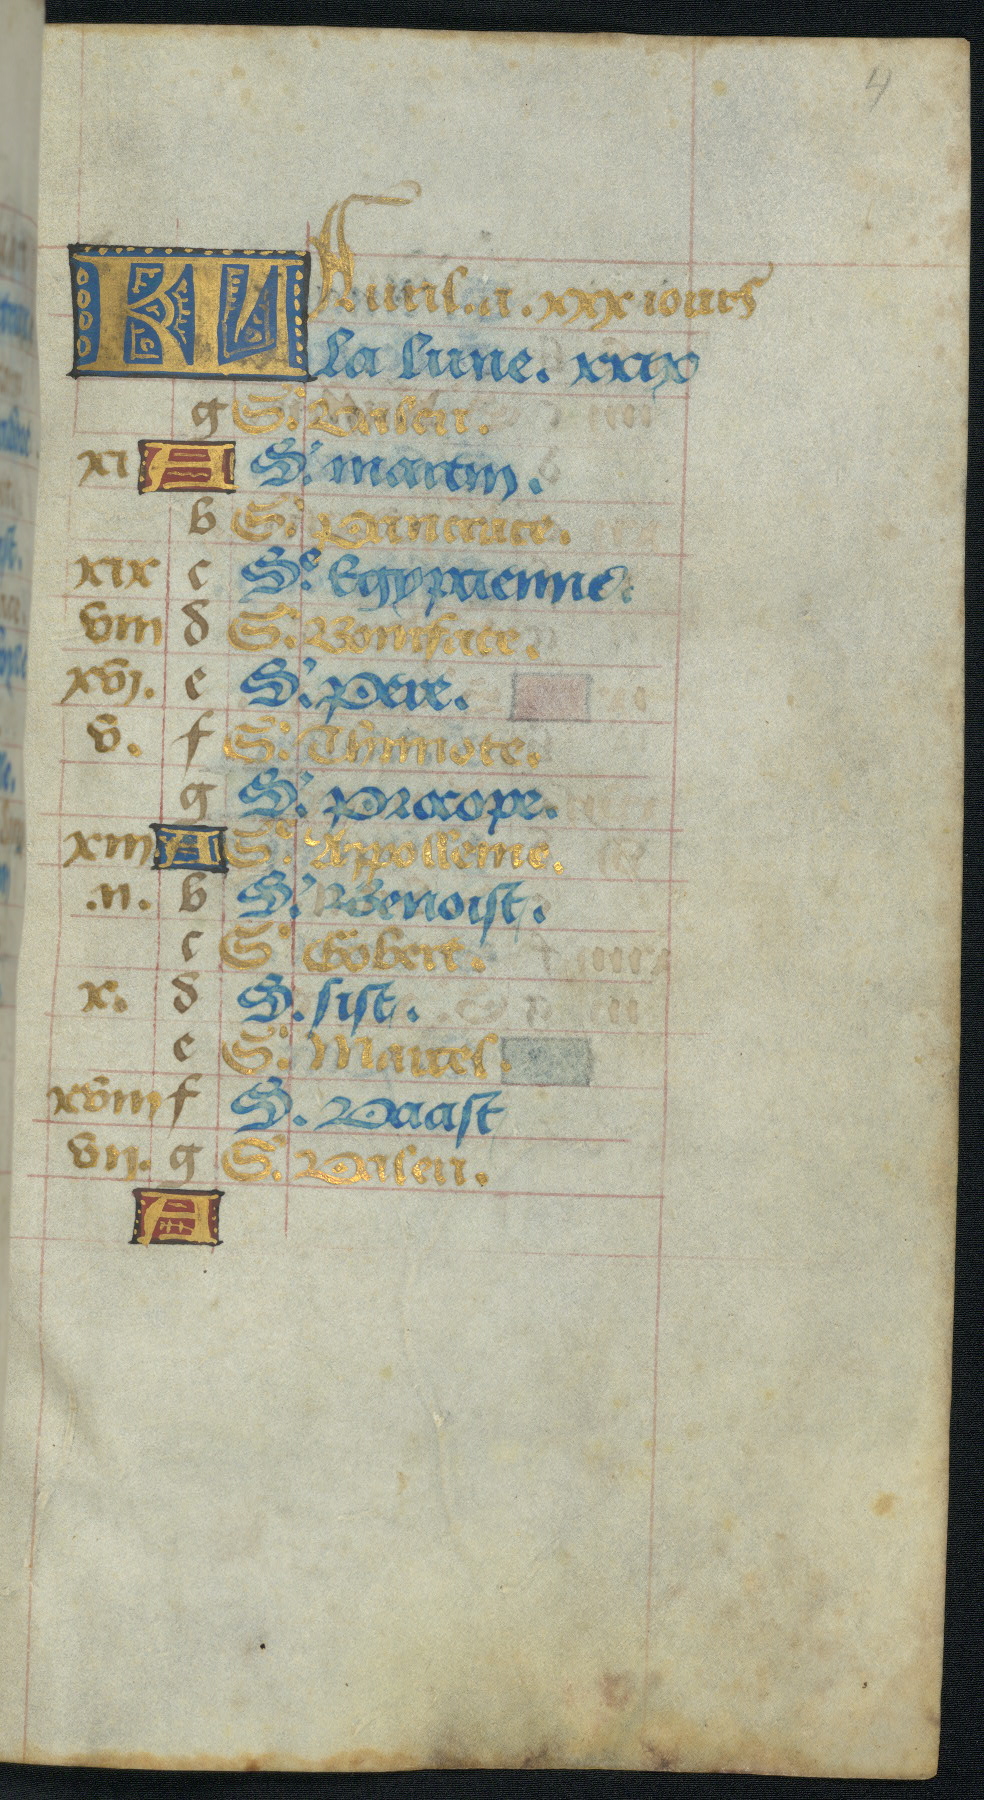 4
KL Auril.a.xxx iours
La lune. xxix
g S. Valeri.
xi A S. martin.
b S. Pancrace.
xix c Se Egyptienne.
viii d S. Boniface.
xvi. e S. pere.
v. f S. Thimote.
g S. procope.
xiii A Se Appolleine.
.ii. b S. Benoist.
c S Gobert.
x. d S. sist.
e S. Marcel.
xviii f S. Vaast
vii. g S. Valeri.
A